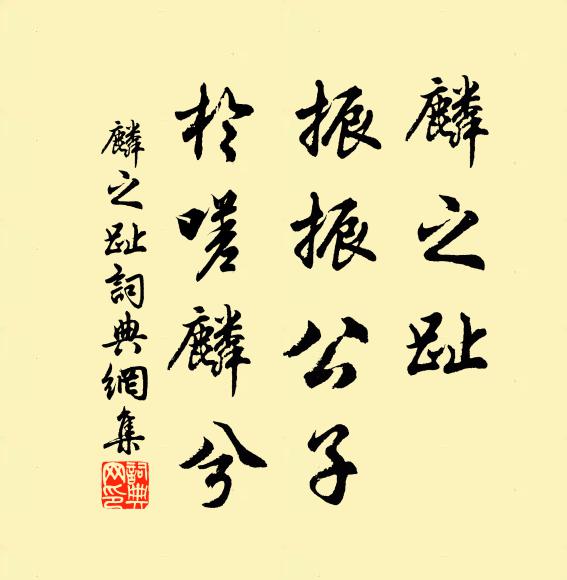 麟之趾
振振公子
於嗟麟兮
麟之趾詞典網集
詞典網印